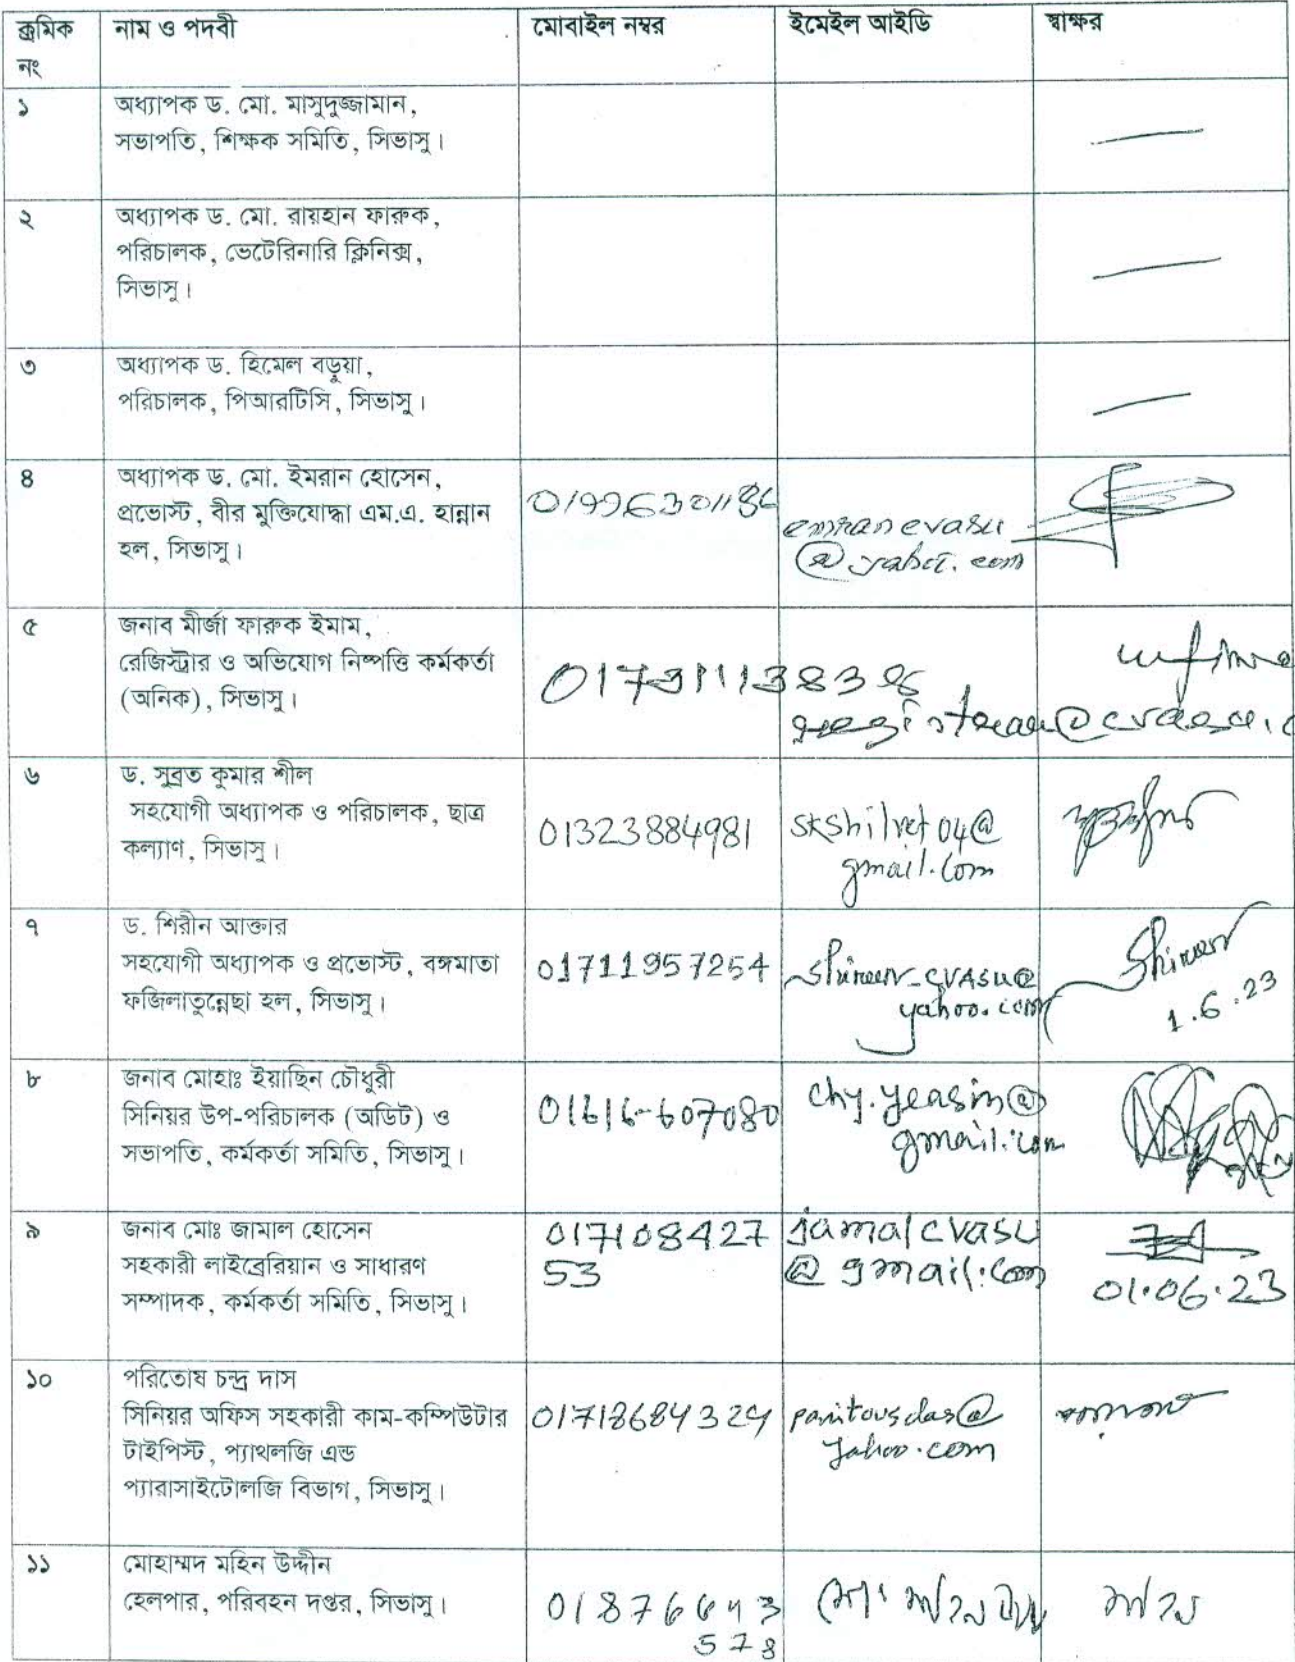 ক্রমিক নং নাম ও পদবী মোবাইল নম্বর ইমেইল আইডি স্বাক্ষর
১ অধ্যাপক ড. মো. মাসুদুজ্জামান,
সভাপতি, শিক্ষক সমিতি, সিভাসু।
২ অধ্যাপক ড. মো. রায়হান ফারুক,
পরিচালক, ভেটেরিনারি ক্লিনিক্স,
সিভাসু।
৩ অধ্যাপক ড. হিমেল বড়ুয়া,
পরিচালক, পিআরটিসি, সিভাসু।
৪ অধ্যাপক ড. মো. ইমরান হোসেন,
প্রভোস্ট, বীর মুক্তিযোদ্ধা এম.এ. হান্নান
হল, সিভাসু।
৫ জনাব মীর্জা ফারুক ইমাম,
রেজিস্ট্রার ও অভিযোগ নিষ্পত্তি কর্মকর্তা
(অনিক), সিভাসু।
৬ ড. সুব্রত কুমার শীল
সহযোগী অধ্যাপক ও পরিচালক, ছাত্র
কল্যাণ, সিভাসু।
01323884981
skshilvet04@
gmail.com
৭ ড. শিরীন আক্তার
সহযোগী অধ্যাপক ও প্রভোস্ট, বঙ্গমাতা
ফজিলাতুন্নেছা হল, সিভাসু।
01711957254
yahoo.com
1.6.23
৮ জনাব মোহাঃ ইয়াছিন চৌধুরী
সিনিয়র উপ-পরিচালক (অডিট) ও
সভাপতি, কর্মকর্তা সমিতি, সিভাসু।
01616-607080
chy.yeasin@
gmail.com
৯ জনাব মোঃ জামাল হোসেন
সহকারী লাইব্রেরিয়ান ও সাধারণ
সম্পাদক, কর্মকর্তা সমিতি, সিভাসু।
017108427
53
jamalcvasu
@gmail.com
01.06.23
১০ পরিতোষ চন্দ্র দাস
সিনিয়র অফিস সহকারী কাম-কম্পিউটার
টাইপিস্ট, প্যাথলজি এন্ড
প্যারাসাইটোলজি বিভাগ, সিভাসু।
yahoo.com
১১ মোহাম্মদ মহিন উদ্দীন
হেলপার, পরিবহন দপ্তর, সিভাসু।